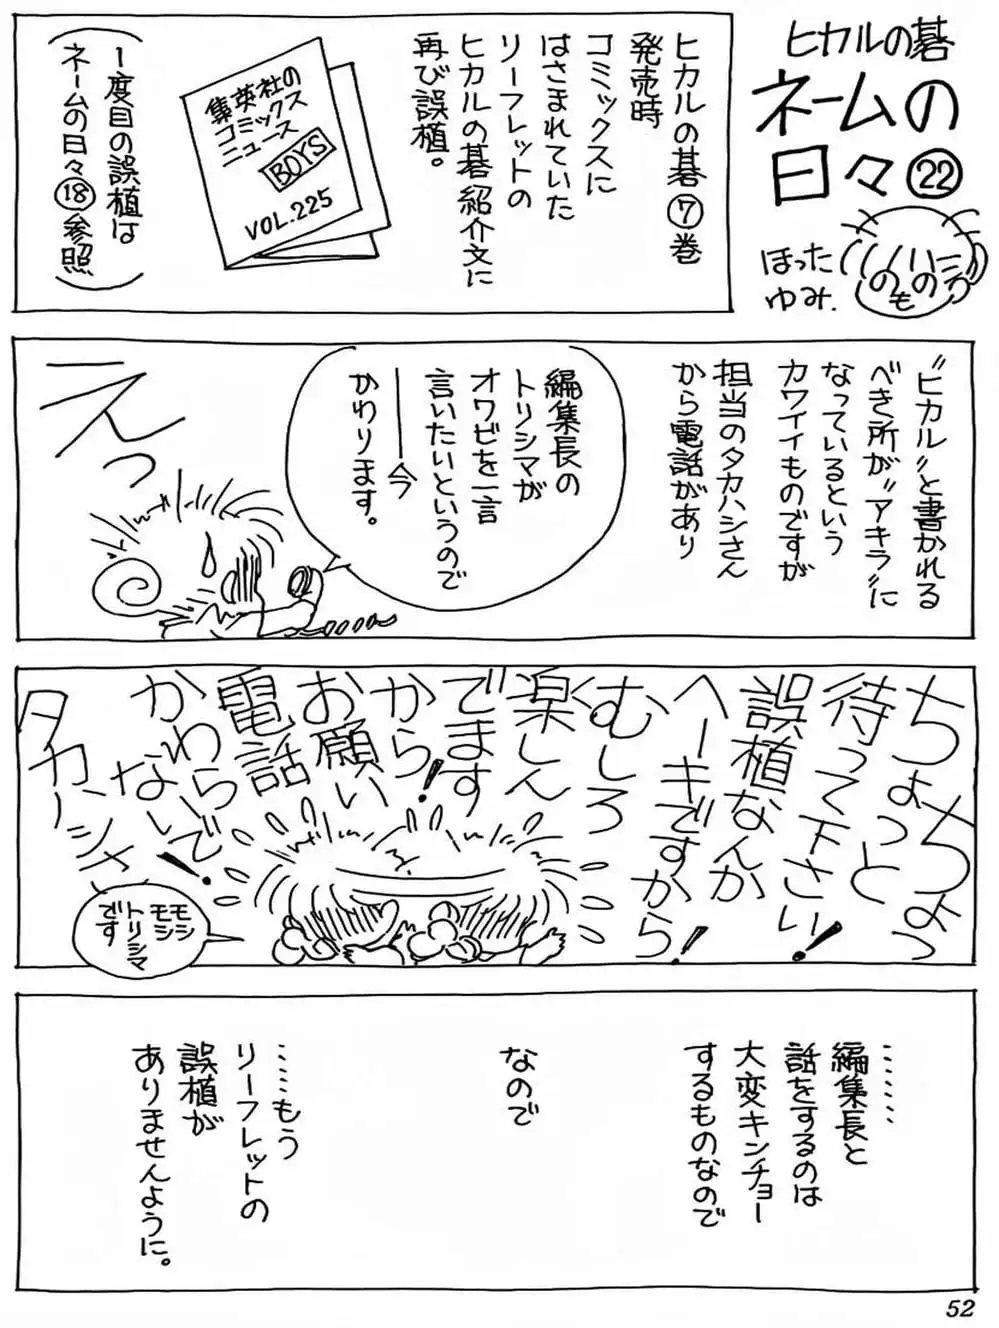 ヒカルの碁
ネームの
日々㉒
ほった
ゆみ.
のもの
ヒカルの碁⑦巻
発売時
コミックスに
はさまれていた
リーフレットの
ヒカルの碁紹介文に
再び誤植。
集英社の
コミックス
ニュース
BOYS
VOL.225
(1度目の誤植は
ネームの日々⑱参照)
"ヒカル"と書かれる
べき所が"アキラ"に
なっているという
カワイイものですが
担当のタカハシさん
から電話があり
編集長の
トリシマが
オワビを一言
言いたいというので
――今
かわります。
えっ
ちょっ
ちょっと
待って下さい!
誤植なんか
ヘーキですから!
むしろ
楽しん
でます
から!
お願い
電話
かわらないで!
タカハシさん
モシ
モシ
トリシマ
です
……編集長と
話をするのは
大変キンチョー
するものなので
なので
……もう
リーフレットの
誤植が
ありませんように。
52